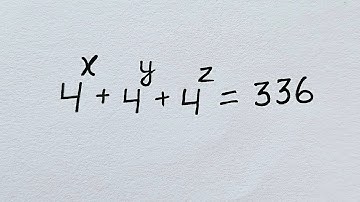 4^x + 4^y + 4^z = 336